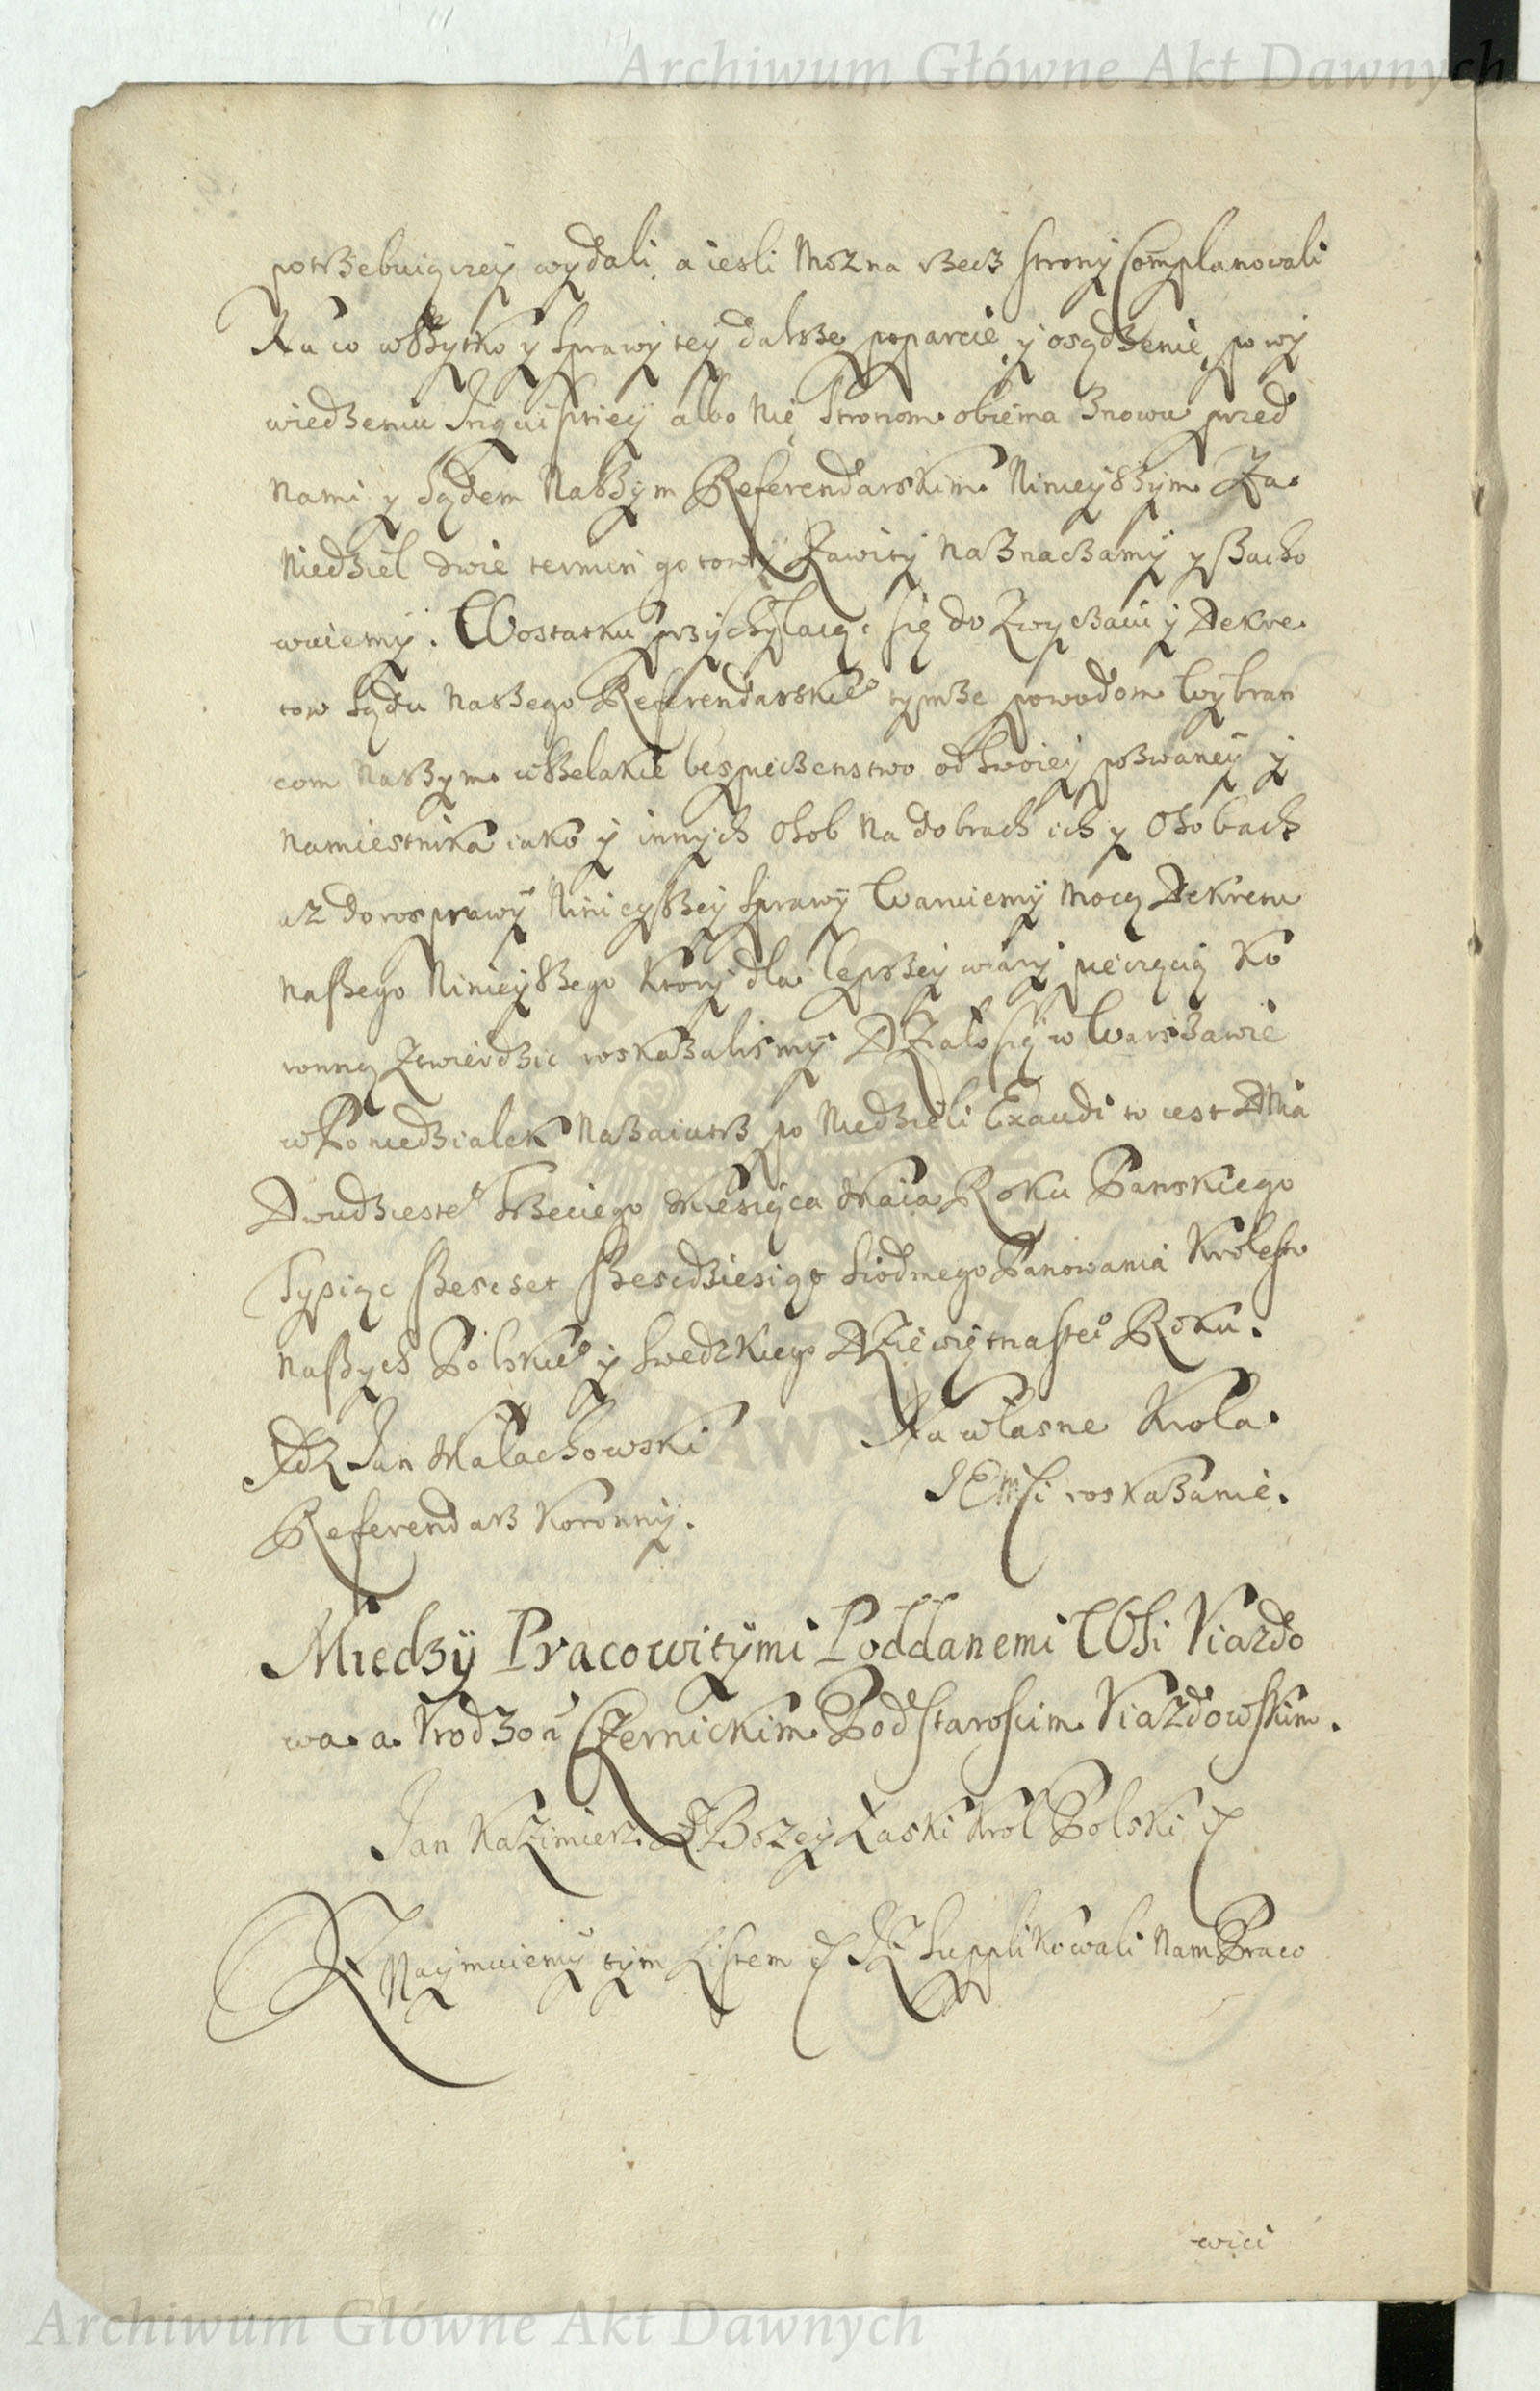 Archiwum Główne Akt Dawnych
potrzebuiączey wydali, a iesli Mozna rzecz strony Complanowali
Na co wszytko y sprawy tey dalsze poparcie y osądzenie po wy
wiedzeniu Inquisitiey albo Nie stronom obiema znowu przed
nami y Sądem Naszym Referendarskim Ninieyszym Za
Niedziel dwie termin gotowy Zawity Naznaczamy y zacho
wuiemy. Wostatku przychylaiąc się do Zwyczaiu y Dekre
tow Sądu Naszego Referendarskieo tymze powodom Wybran
com Naszym wszelakie bespieczenstwo od swoiey pozwaney y
Namiestnika iako y innych Osob Na dobrach ich y Osobach
az do rosprawy Ninieyszey sprawy Waruiemy Mocą Dekretu
naszego Ninieyszego Ktory dla lepszey wiary pieczęcią Ko
ronną Ztwierdzic roskazalismy Działo się w Warszawie
w Poniedzialek Nazaiutrz po Niedzieli Exaudi to iest Dnia
Dwudziesteo Trzeciego Miesiąca Maia Roku Panskiego
Tysiąc szescset szescdziesiąt siodmego Panowania Krolestw
naszych Polskieo y Swedzkiego Dziewiętnasteo Roku.
Xdz Jan Małachowski
Na własne Krola
Referendarz Koronny.
JEMsci roskazanie.
Miedzy Pracowitymi Poddanemi Wsi Viazdo
wa a Vrodzon Czernickim Podstaroscim Viazdowskim.
Jan Kazimierz z Bozey Łaski Krol Polski
Znaymuiemy tym Listem Iz supplikowali Nam Praco
wici
Archiwum Główne Akt Dawnych